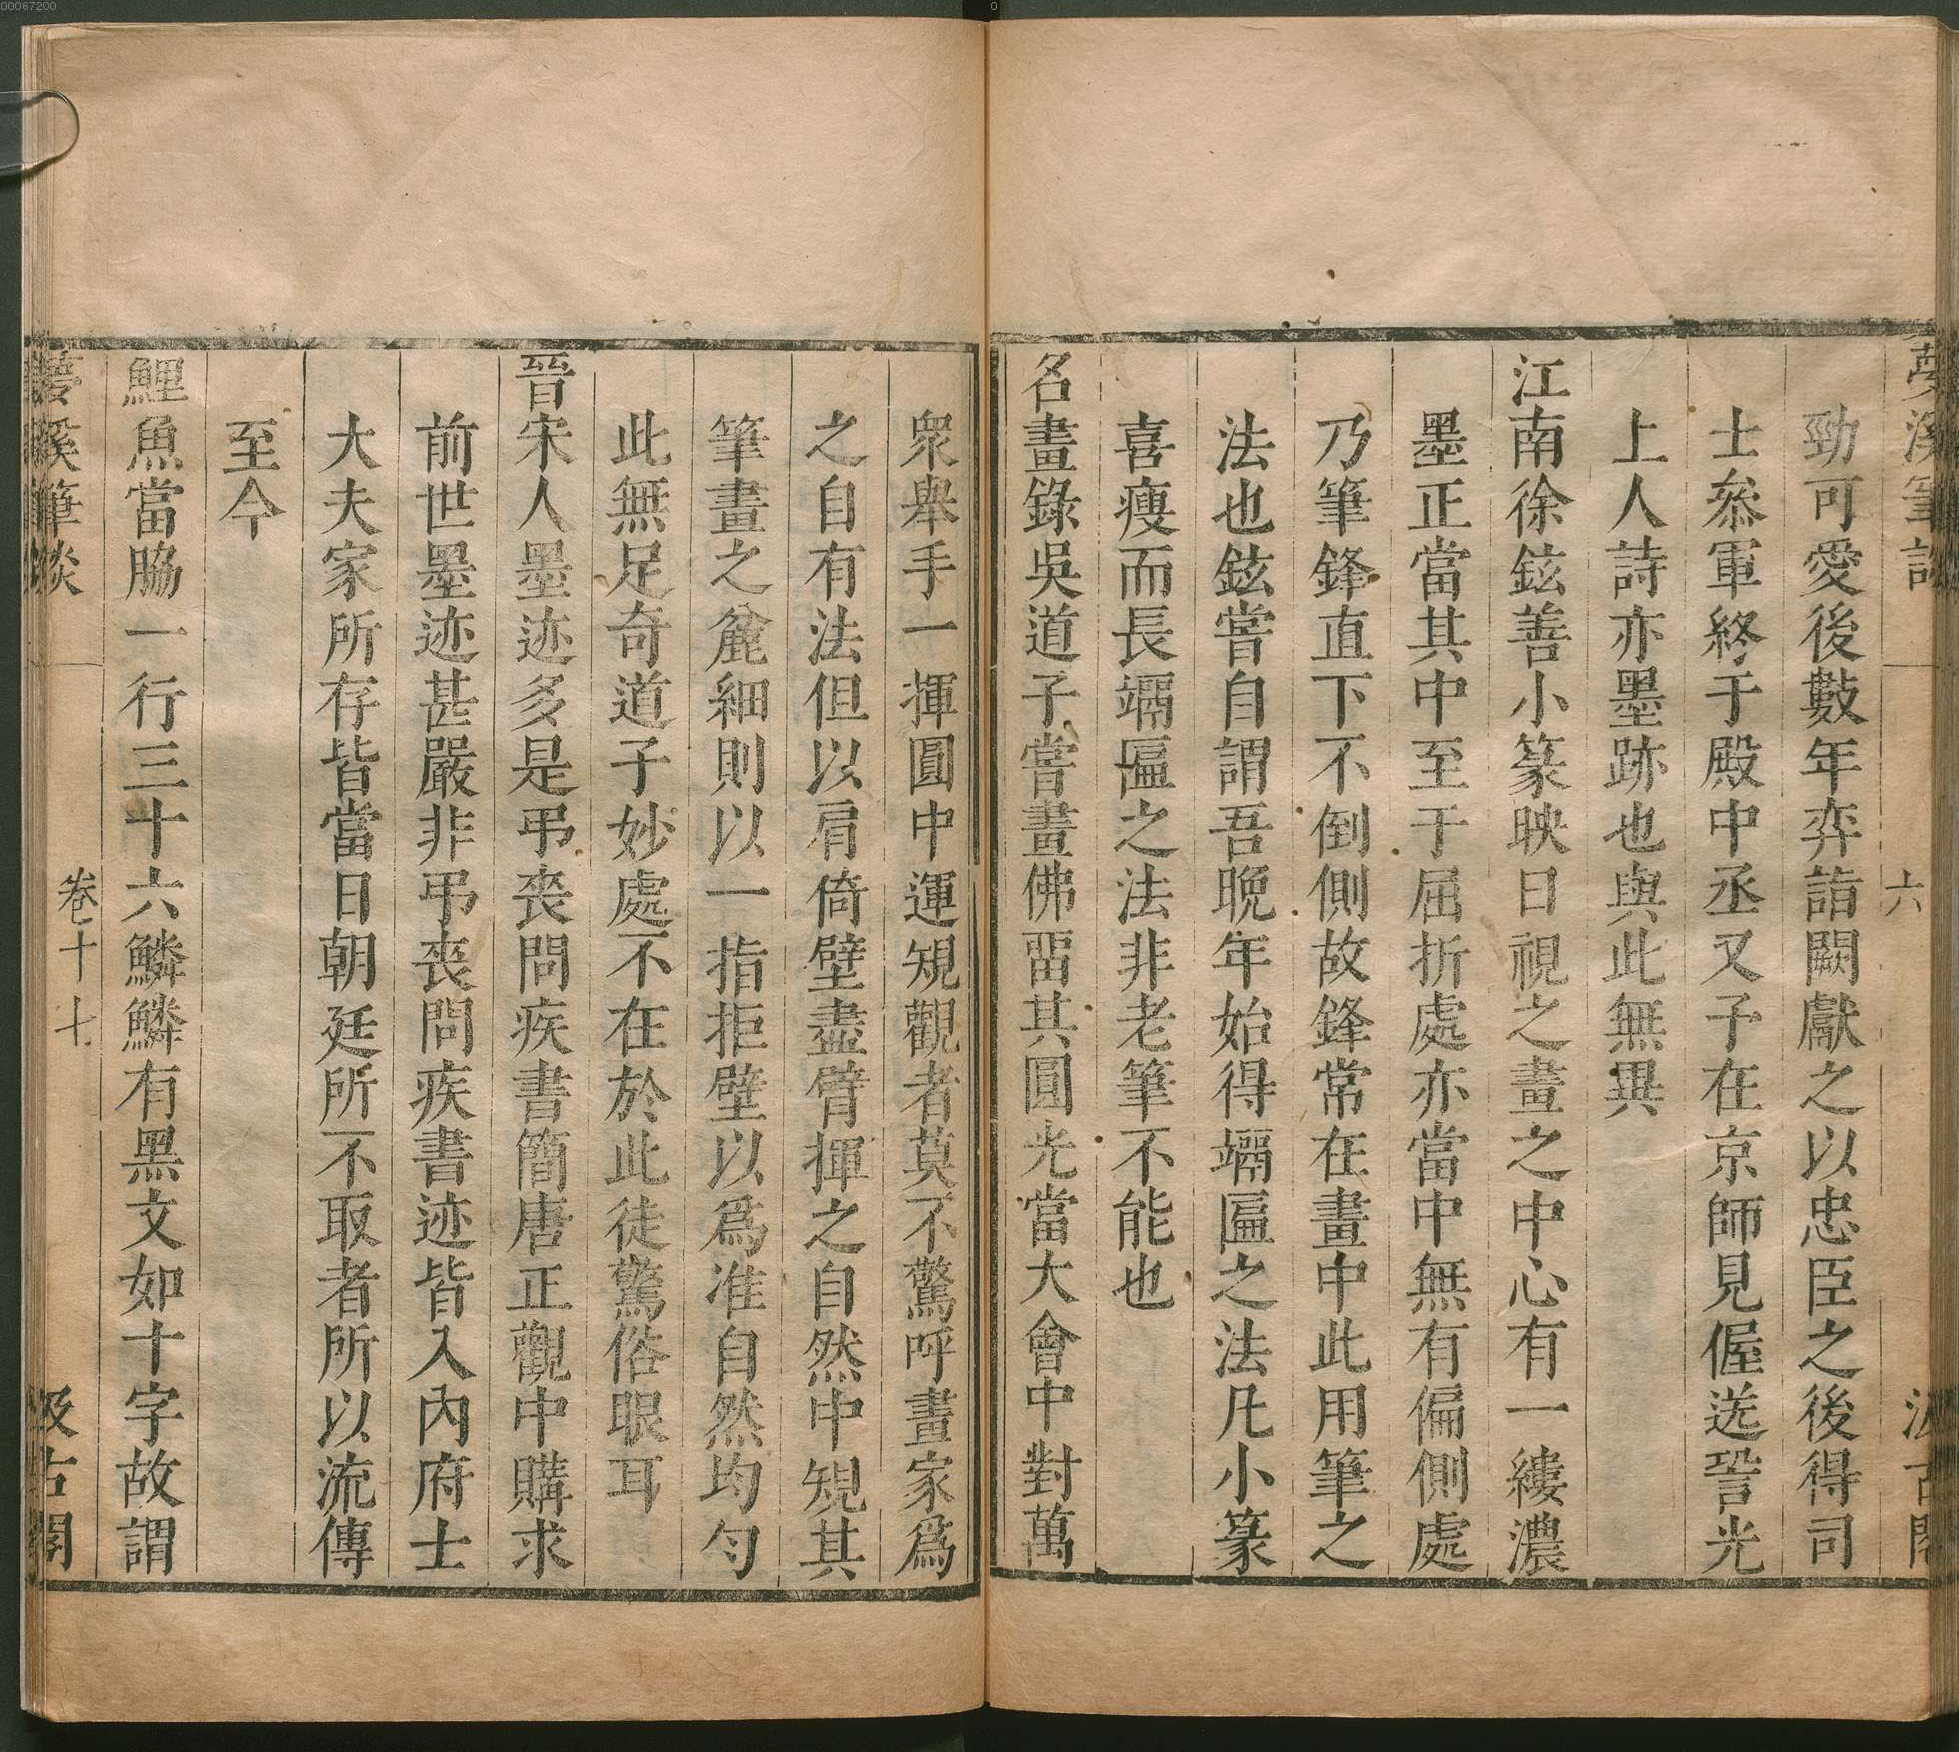 00067200
0
夢溪筆談
六
汲古閣
勁可愛後數年弈詣闕獻之以忠臣之後得司
士叅軍終于殿中丞又予在京師見偓送䛒光
上人詩亦墨跡也與此無異
江南徐鉉善小篆映日視之畫之中心有一縷濃
墨正當其中至于屈折處亦當中無有偏側處
乃筆鋒直下不倒側故鋒常在畫中此用筆之
法也鉉嘗自謂吾晚年始得𥻘匾之法凡小篆
喜瘦而長𥻘匾之法非老筆不能也
名畫錄吳道子嘗畫佛畱其圓光當大會中對萬
衆舉手一揮圓中運規觀者莫不驚呼畫家爲
之自有法但以肩倚壁盡臂揮之自然中規其
筆畫之麄細則以一指拒壁以爲准自然均勻
此無足奇道子妙處不在於此徒驚俗眼耳
晉宋人墨迹多是弔䘮問疾書簡唐正觀中購求
前世墨迹甚嚴非弔䘮問疾書迹皆入內府士
大夫家所存皆當日朝廷所不取者所以流傳
至今
鯉魚當脇一行三十六鱗鱗有黑文如十字故謂
夢溪筆談
卷十七
汲古閣